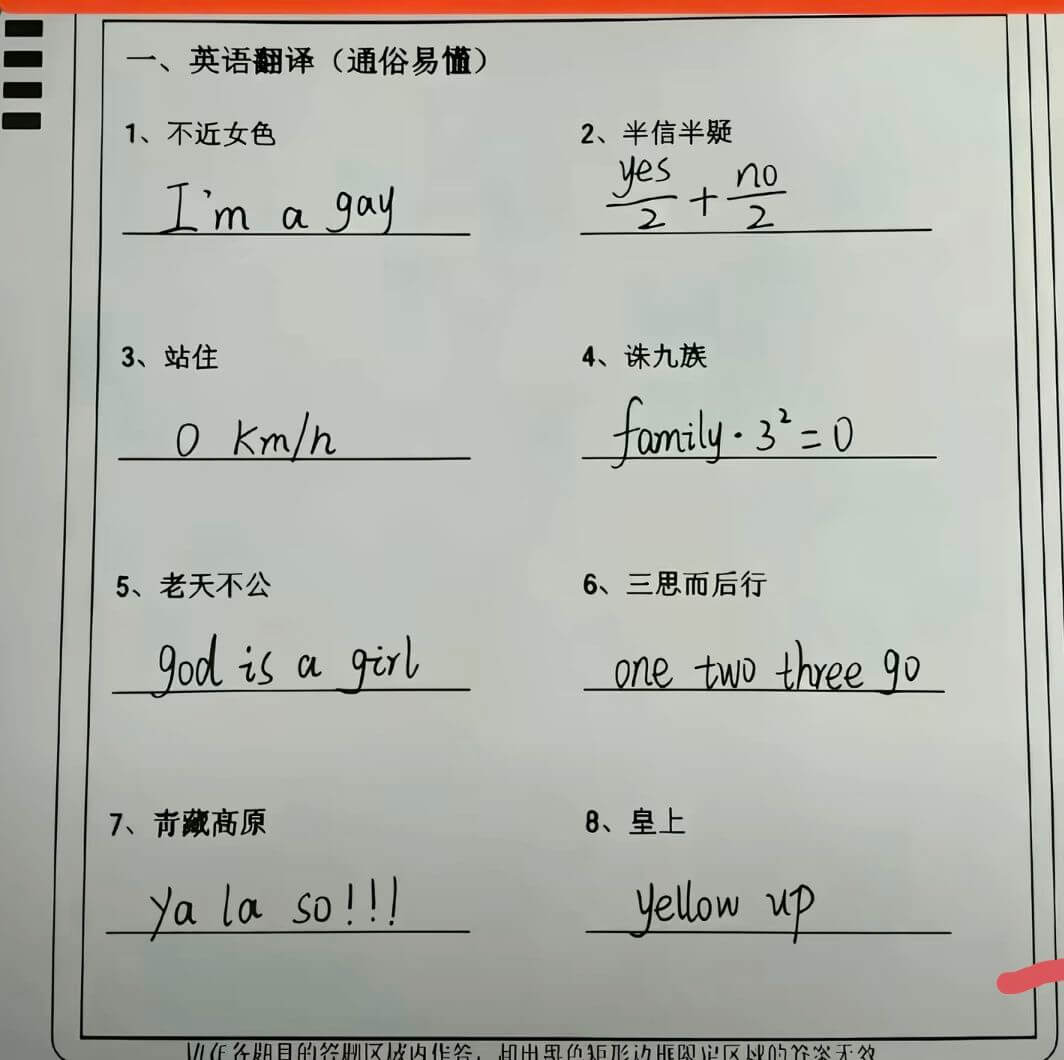 一、英语翻译（通俗易懂）
1、不近女色
I'm a gay
2、半信半疑
yes/2 + no/2
3、站住
0 km/h
4、诛九族
family · 3² = 0
5、老天不公
god is a girl
6、三思而后行
one two three go
7、青藏高原
ya la so!!!
8、皇上
yellow up
请在各题目的答题区域内作答，超出黑色矩形边框限定区域的答案无效